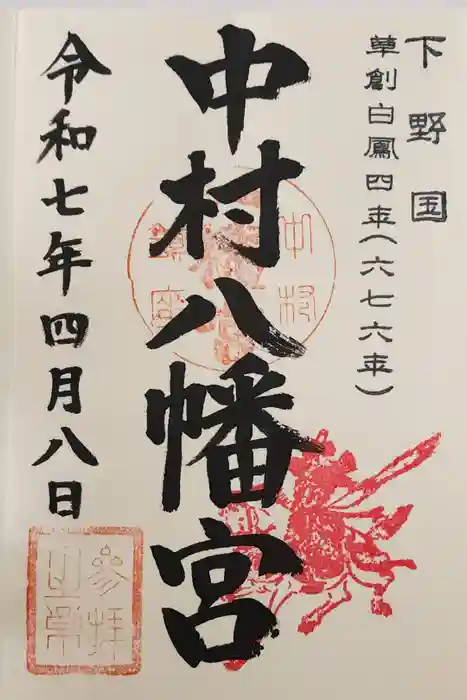 下野国
草創白鳳四年(六七六年)
中村八幡宮
令和七年四月八日
参拝
之章